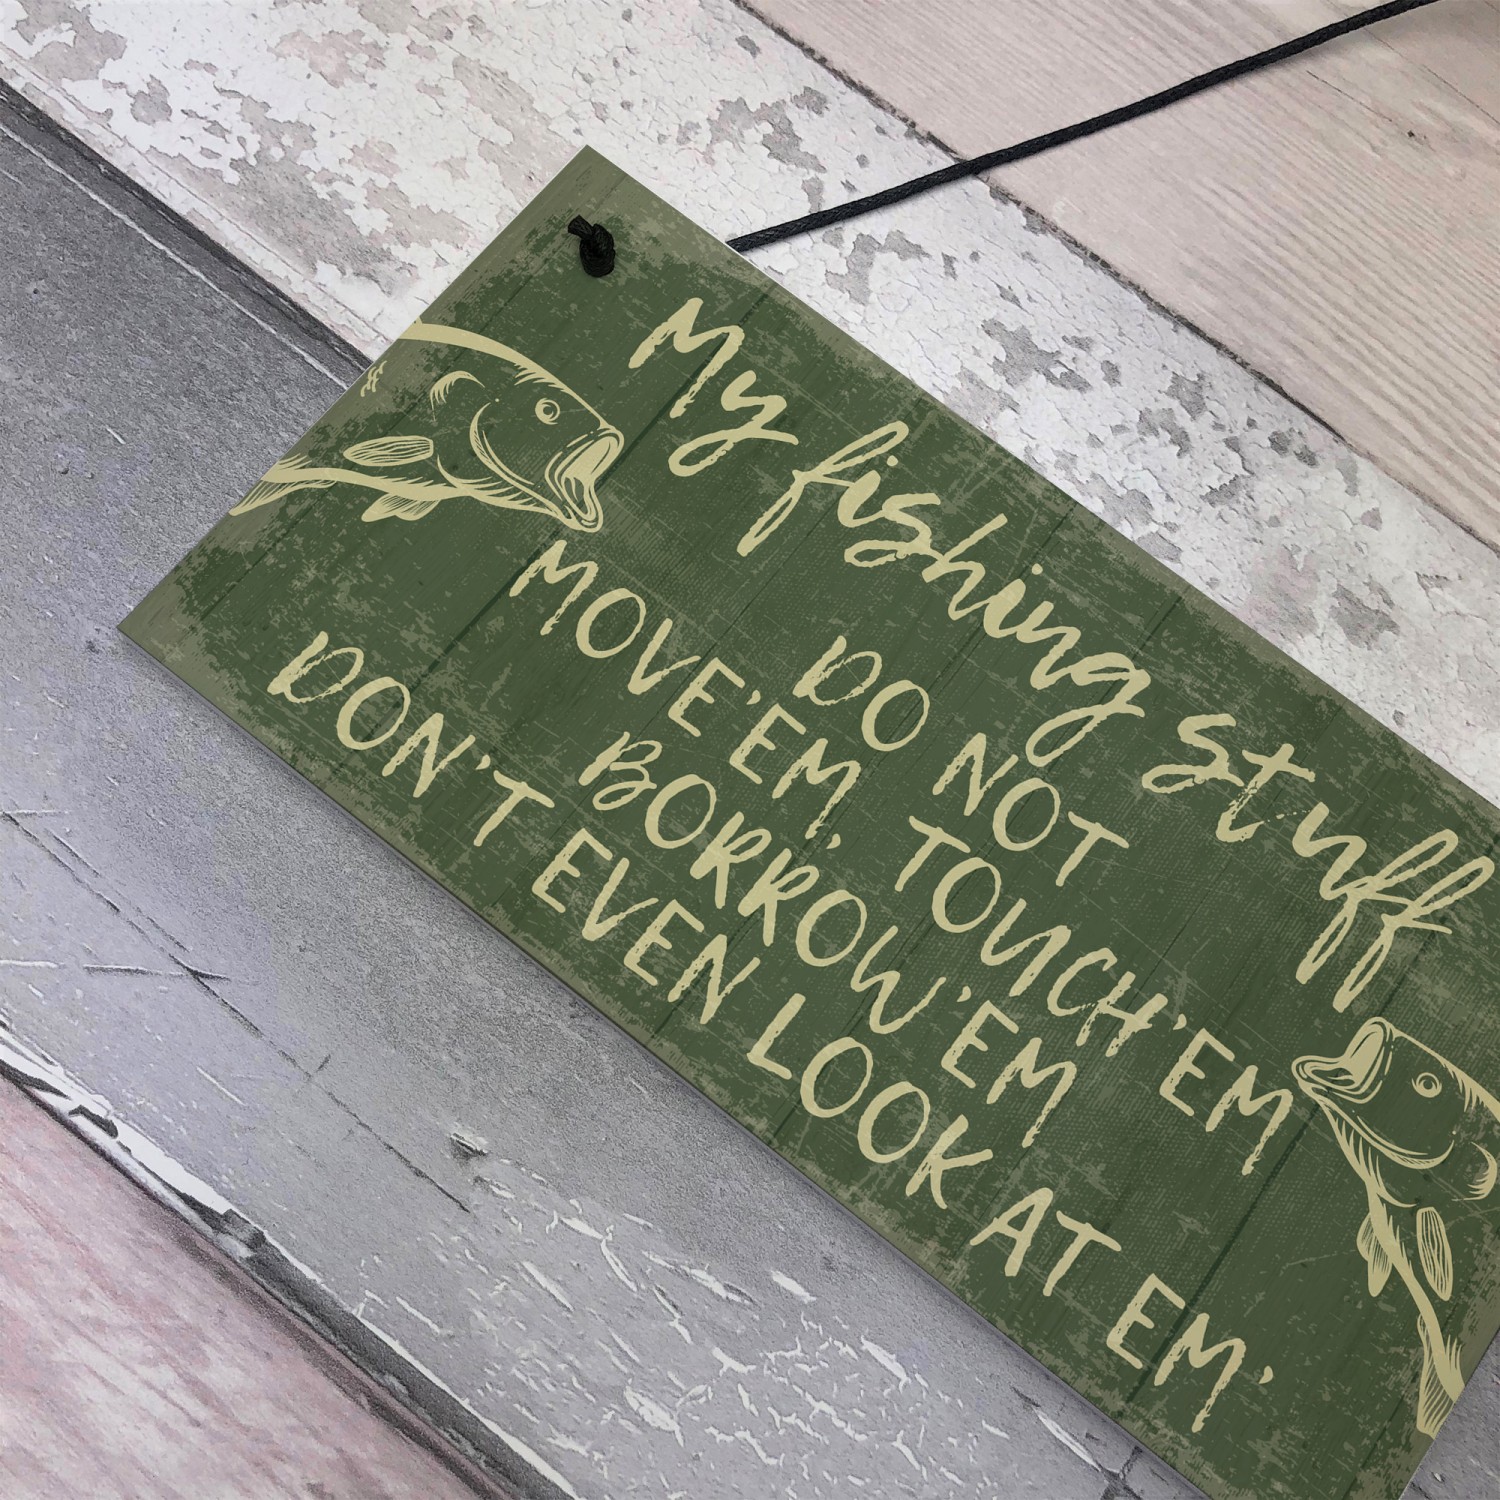 My fishing stuff
DO NOT
MOVE'EM, TOUCH'EM
BORROW'EM
DON'T EVEN LOOK AT EM'